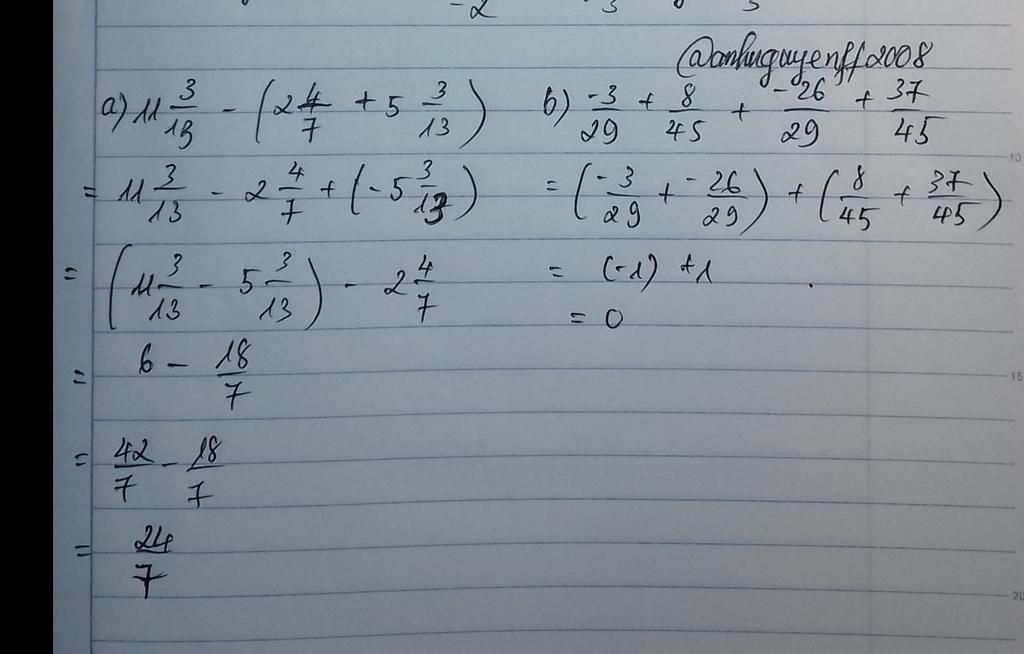 -2 3 3
@anhnguyenff2008
a) 11 3/13 - (2 4/7 + 5 3/13)
= 11 3/13 - 2 4/7 + (-5 3/13)
= (11 3/13 - 5 3/13) - 2 4/7
= 6 - 18/7
= 42/7 - 18/7
= 24/7
b) -3/29 + 8/45 + -26/29 + 37/45
= (-3/29 + -26/29) + (8/45 + 37/45)
= (-1) + 1
= 0
10
15
20